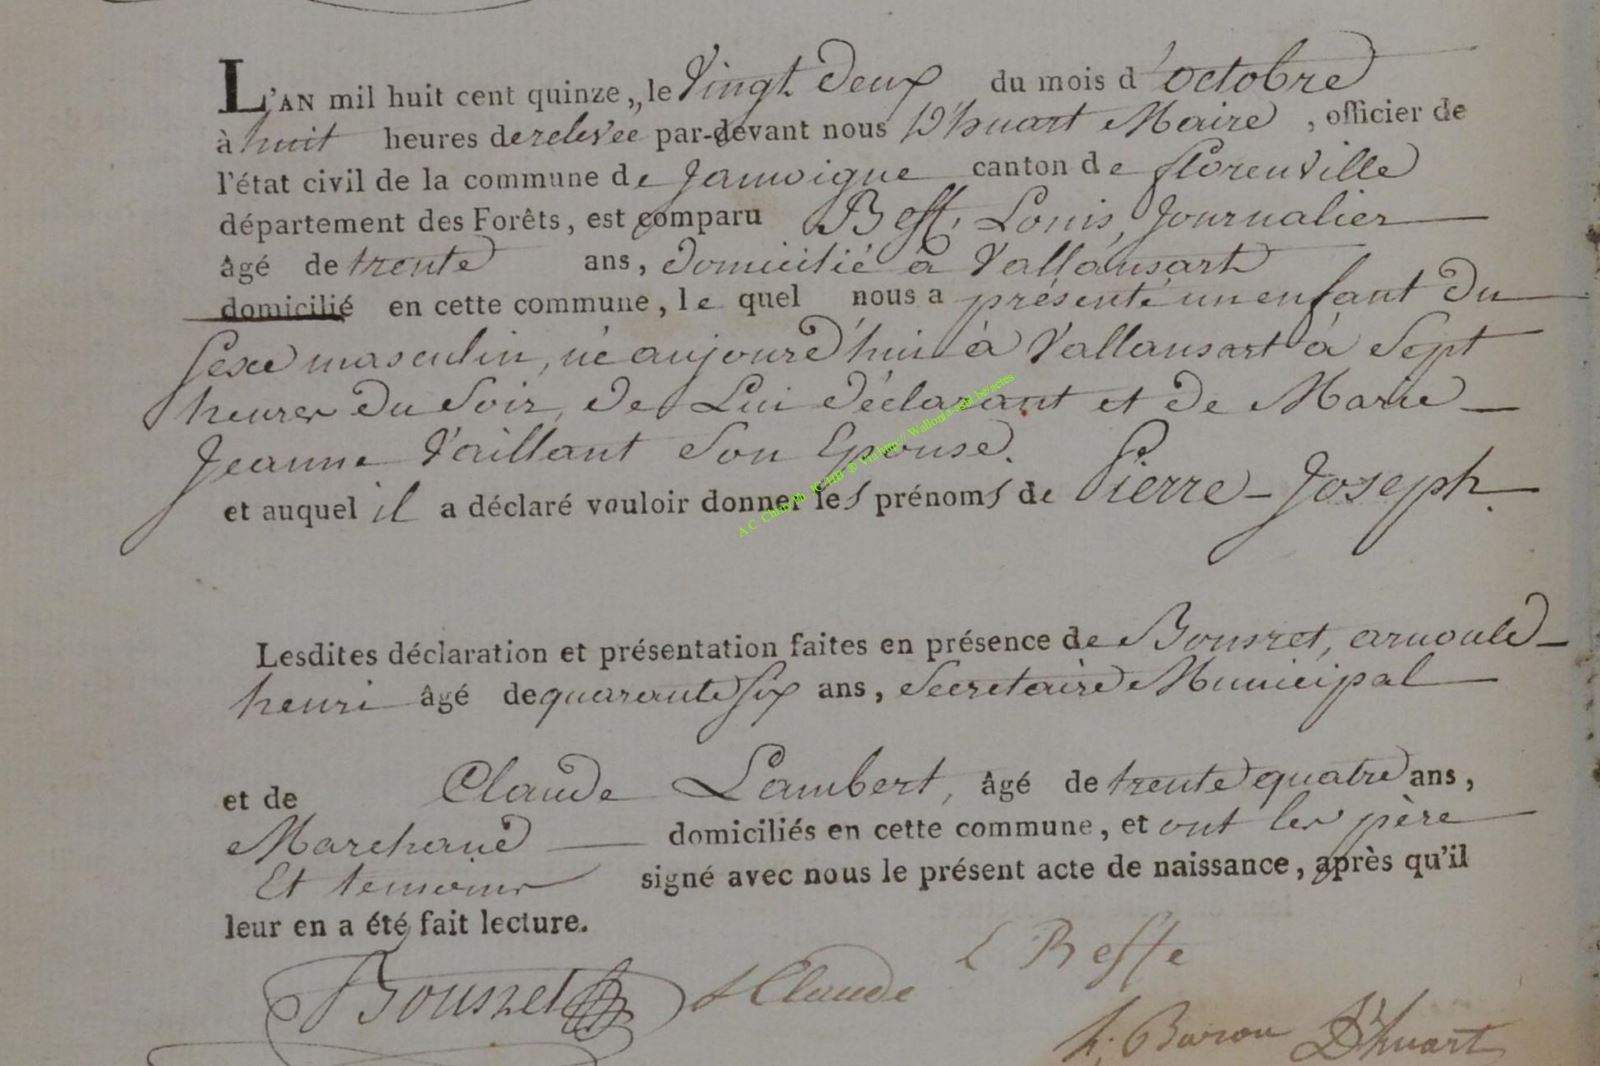 L'AN mil huit cent quinze, le Vingt Deux du mois d'octobre
à huit heures de relevée par-devant nous D'huart Maire, officier de
l'état civil de la commune de Jamoigne canton de florenville
département des Forêts, est comparu Besf, Louis, Journalier
âgé de trente ans, domicilié à Vallansart
domicilié en cette commune, le quel nous a présenté un enfant du
Sexe masculin, né aujourd'hui à Vallansart à Sept
heures du Soir, de Lui déclarant et de Marie
Jeanne Vaillant Son Epouse.
et auquel il a déclaré vouloir donner les prénoms de Pierre-Joseph.
Lesdites déclaration et présentation faites en présence de Bousret, arnould
henri âgé de quarante Six ans, Secretaire Municipal
et de Claude Lambert, âgé de trente quatre ans,
Marchand domiciliés en cette commune, et ont les père
Et temoins signé avec nous le présent acte de naissance, après qu'il
leur en a été fait lecture.
Bousret L Claude L Besse
h: Baron D'huart